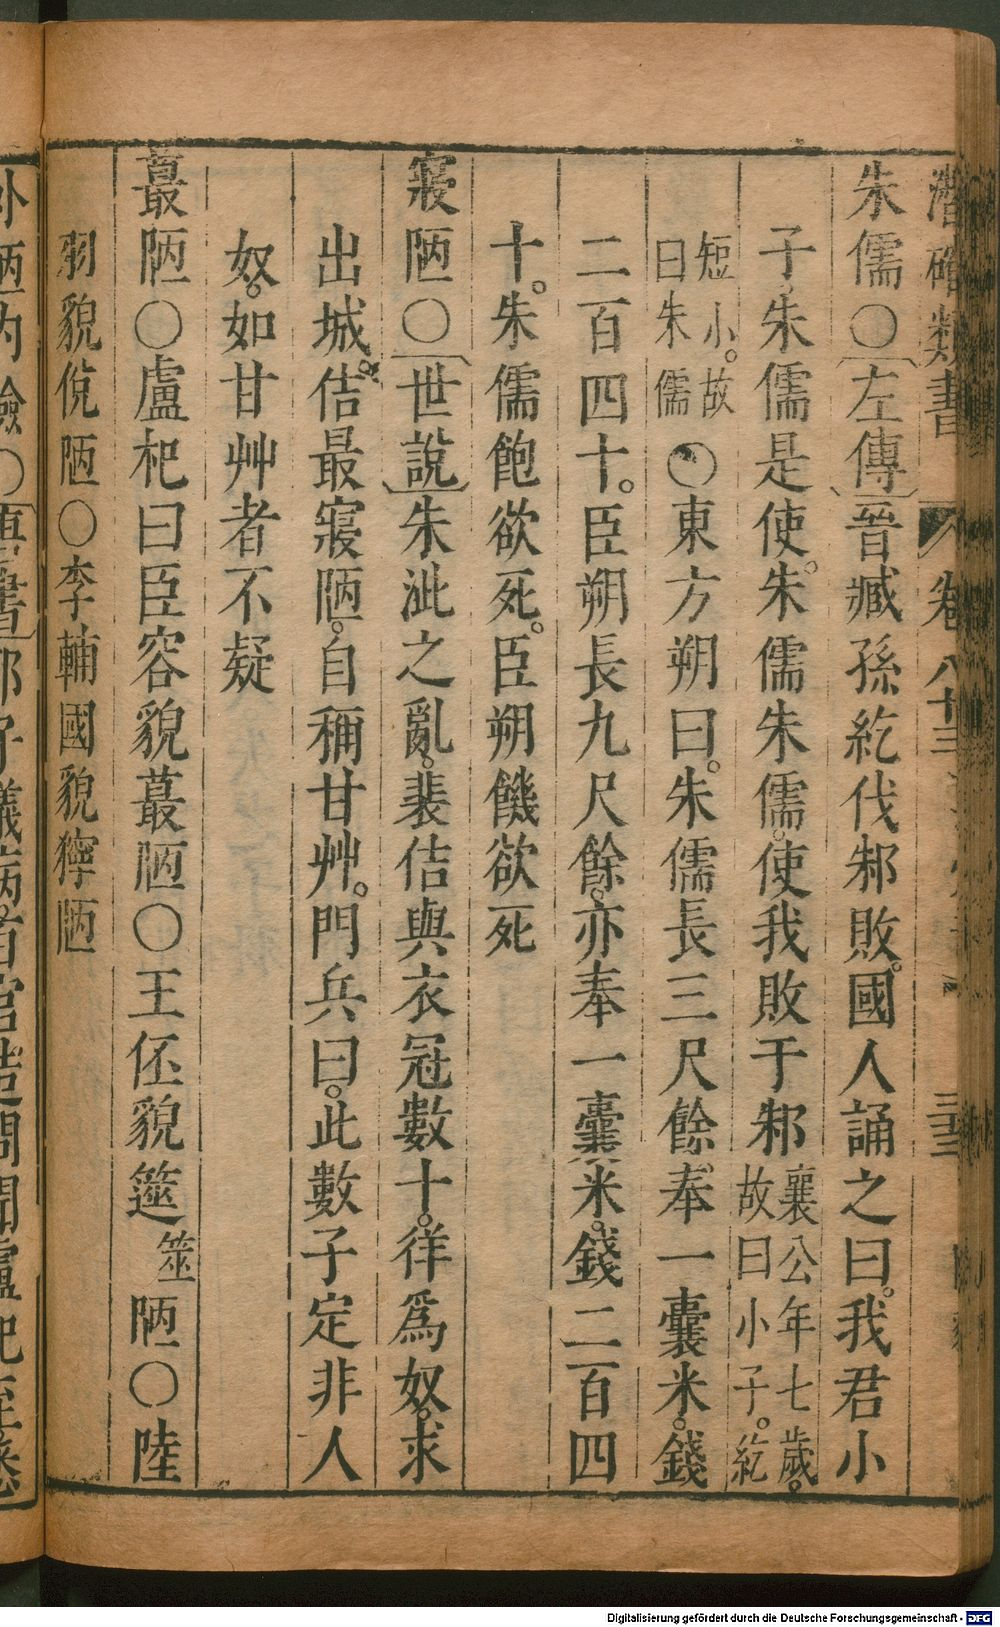 潛確類書 卷八十三 三十三
朱儒○左傳晉臧孫紇伐邾敗。國人誦之曰。我君小
子。朱儒是使。朱儒朱儒。使我敗于邾襄公年七歲。故曰小子。紇
短小。故曰朱儒○東方朔曰。朱儒長三尺餘。奉一囊米。錢
二百四十。臣朔長九尺餘。亦奉一囊米。錢二百四
十。朱儒飽欲死。臣朔饑欲死
寢陋○世說朱泚之亂。裴佶與衣冠數十。徉爲奴。求
出城。佶最寢陋。自稱甘艸。門兵曰。此數子定非人
奴。如甘艸者不疑
蕞陋○盧杞曰臣容貌蕞陋○王伾貌簉簉陋○陸
羽貌侻陋○李輔國貌獰陋
外陋內險○唐書郭子儀病。百官造問聞盧杞至悉
Digitalisierung gefördert durch die Deutsche Forschungsgemeinschaft - DFG